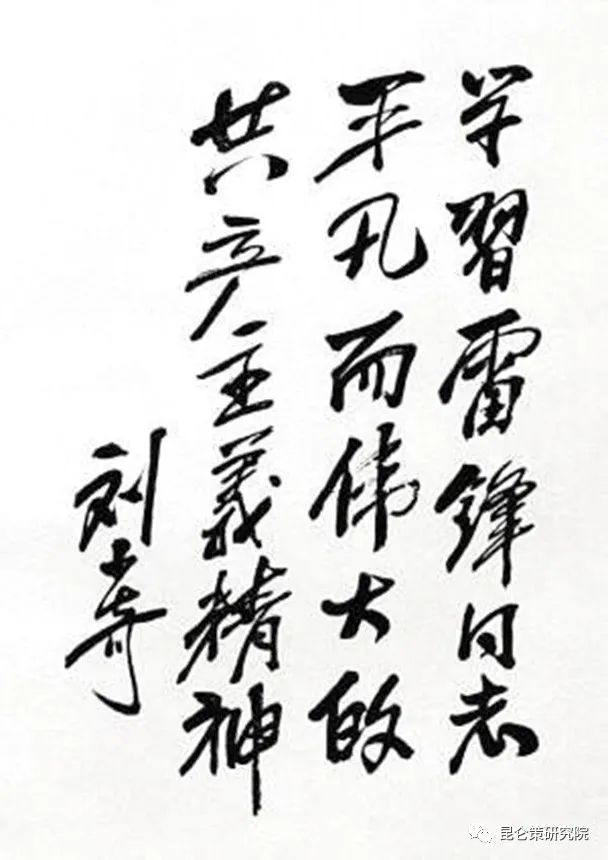 学習雷鋒同志
平凡而伟大的
共产主義精神
刘少奇
昆仑策研究院